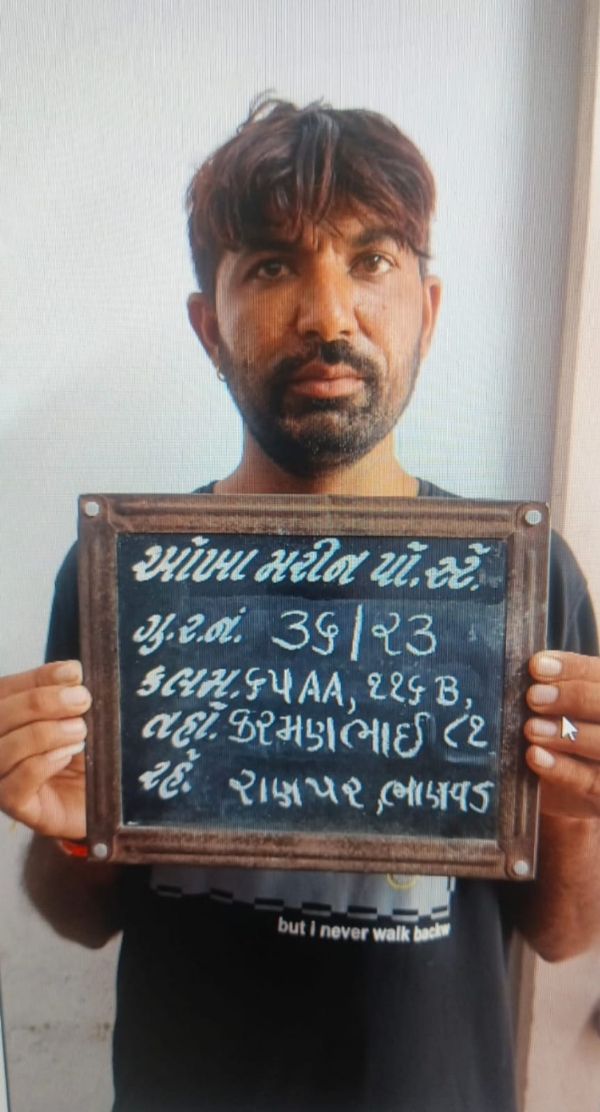 ઓખા મરીન પો.સ્ટે.
ગુ.ર.નં. ૩૬/૨૩
કલમ. ૬૫AA, ૧૧૬ B,
તહો. કરમણભાઈ
રહે. રાણપર, ભાણવડ
but i never walk backw